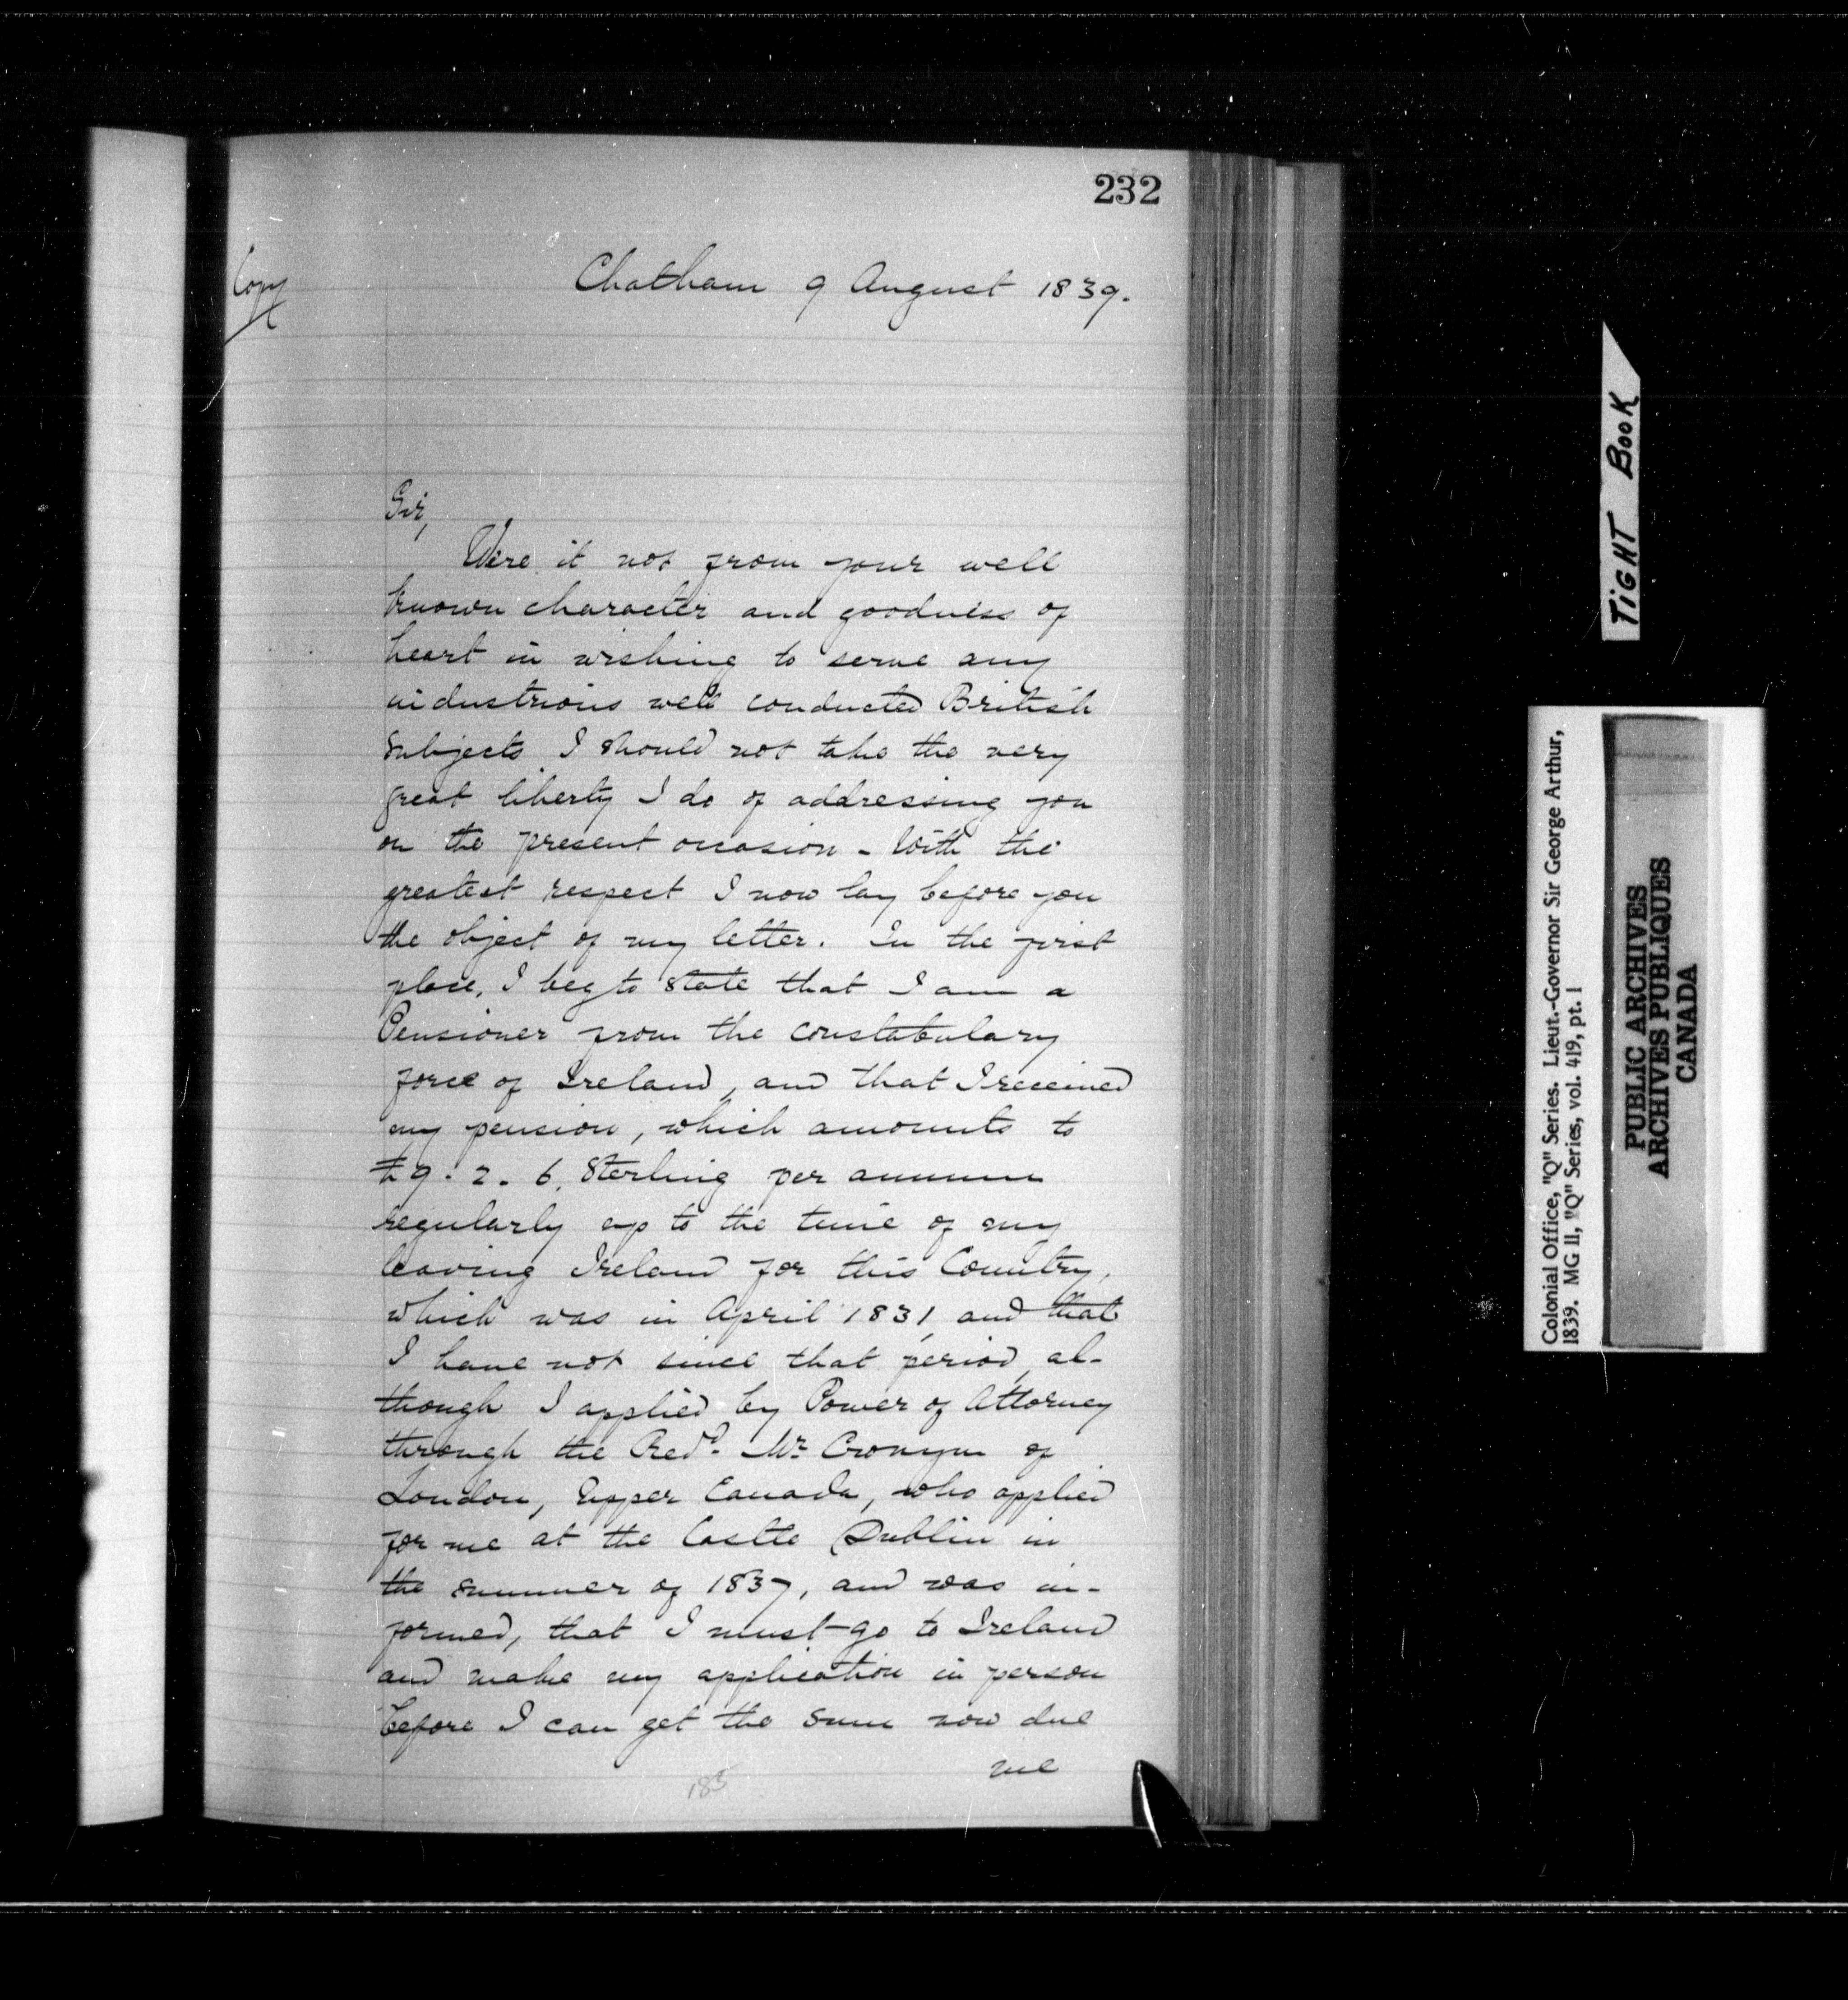 232
Copy
Chatham 9 August 1839.
Sir,
Were it not from your well
known character and goodness of
heart in wishing to serve any
industrious well conducted British
subjects I should not take the very
great liberty I do of addressing you
on the present occasion - With the
greatest respect I now lay before you
the object of my letter. In the first
place, I beg to state that I am a
Pensioner from the constabulary
force of Ireland, and that I received
my pension, which amounts to
£9. 2. 6. Sterling per annum
regularly up to the time of my
leaving Ireland for this Country,
which was in April 1831, and that
I have not since that period, al-
though I applied by Power of Attorney
through the Revd. Mr. Cronyn of
London, Upper Canada, who applied
for me at the Castle Dublin in
the summer of 1837, and was in-
formed, that I must go to Ireland
and make my application in person
before I can get the sum now due
me
185
TIGHT BOOK
Colonial Office, "Q" Series. Lieut.-Governor Sir George Arthur,
1839. MG 11, "Q" Series, vol. 419, pt. 1
PUBLIC ARCHIVES
ARCHIVES PUBLIQUES
CANADA